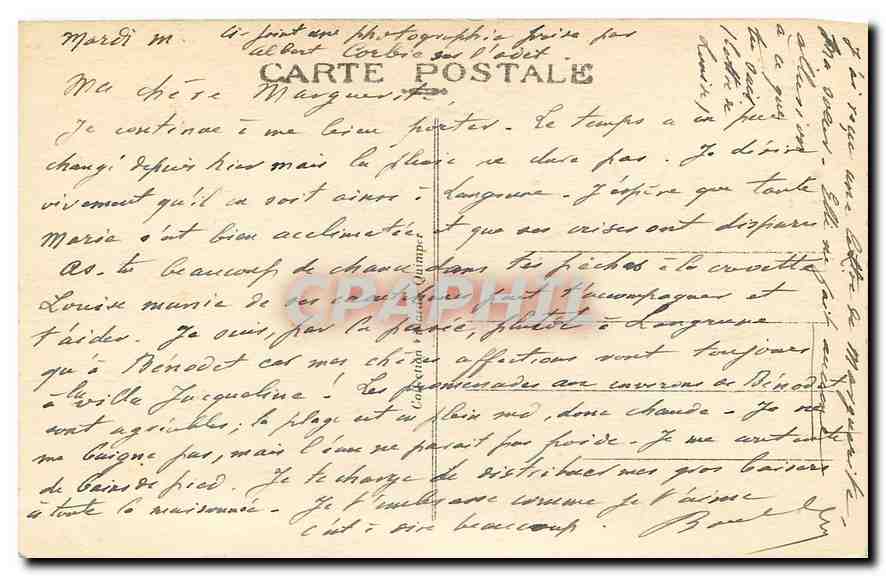 Mardi m. Ci-joint une photographie prise par
Albert Corbie sur l'odet
CARTE POSTALE
Ma chère Marguerite,
Je continue à me bien porter. Le temps a un peu
changé depuis hier mais la pluie ne dure pas. Je désire
vivement qu'il en soit ainsi à Langrune. J'espère que tante
Maria s'est bien acclimatée et que ses crises ont disparu
As-tu beaucoup de chance dans tes pêches à la crevette
Louise munie de ses caoutchoucs peut t'accompagner et
t'aider. Je suis, par la pensée, plutôt à Langrune
qu'à Bénodet car mes chères affections vont toujours
à la villa Jacqueline! Les promenades aux environs de Bénodet
sont agréables; la plage est en plein midi, donc chaude. Je ne
me baigne pas, mais l'eau ne paraît pas froide. Je me contente
de bains de pied. Je te charge de distribuer mes gros baisers
à toute la maisonnée. Je t'embrasse comme je t'aime
c'est à dire beaucoup.
J'ai reçu une lettre de Marguerite.
Ma soeur. Elle ne fait aucune
allusion
à ce que
tu sais
1 lettre
Louise,
Collection Quimper
CAPHIL